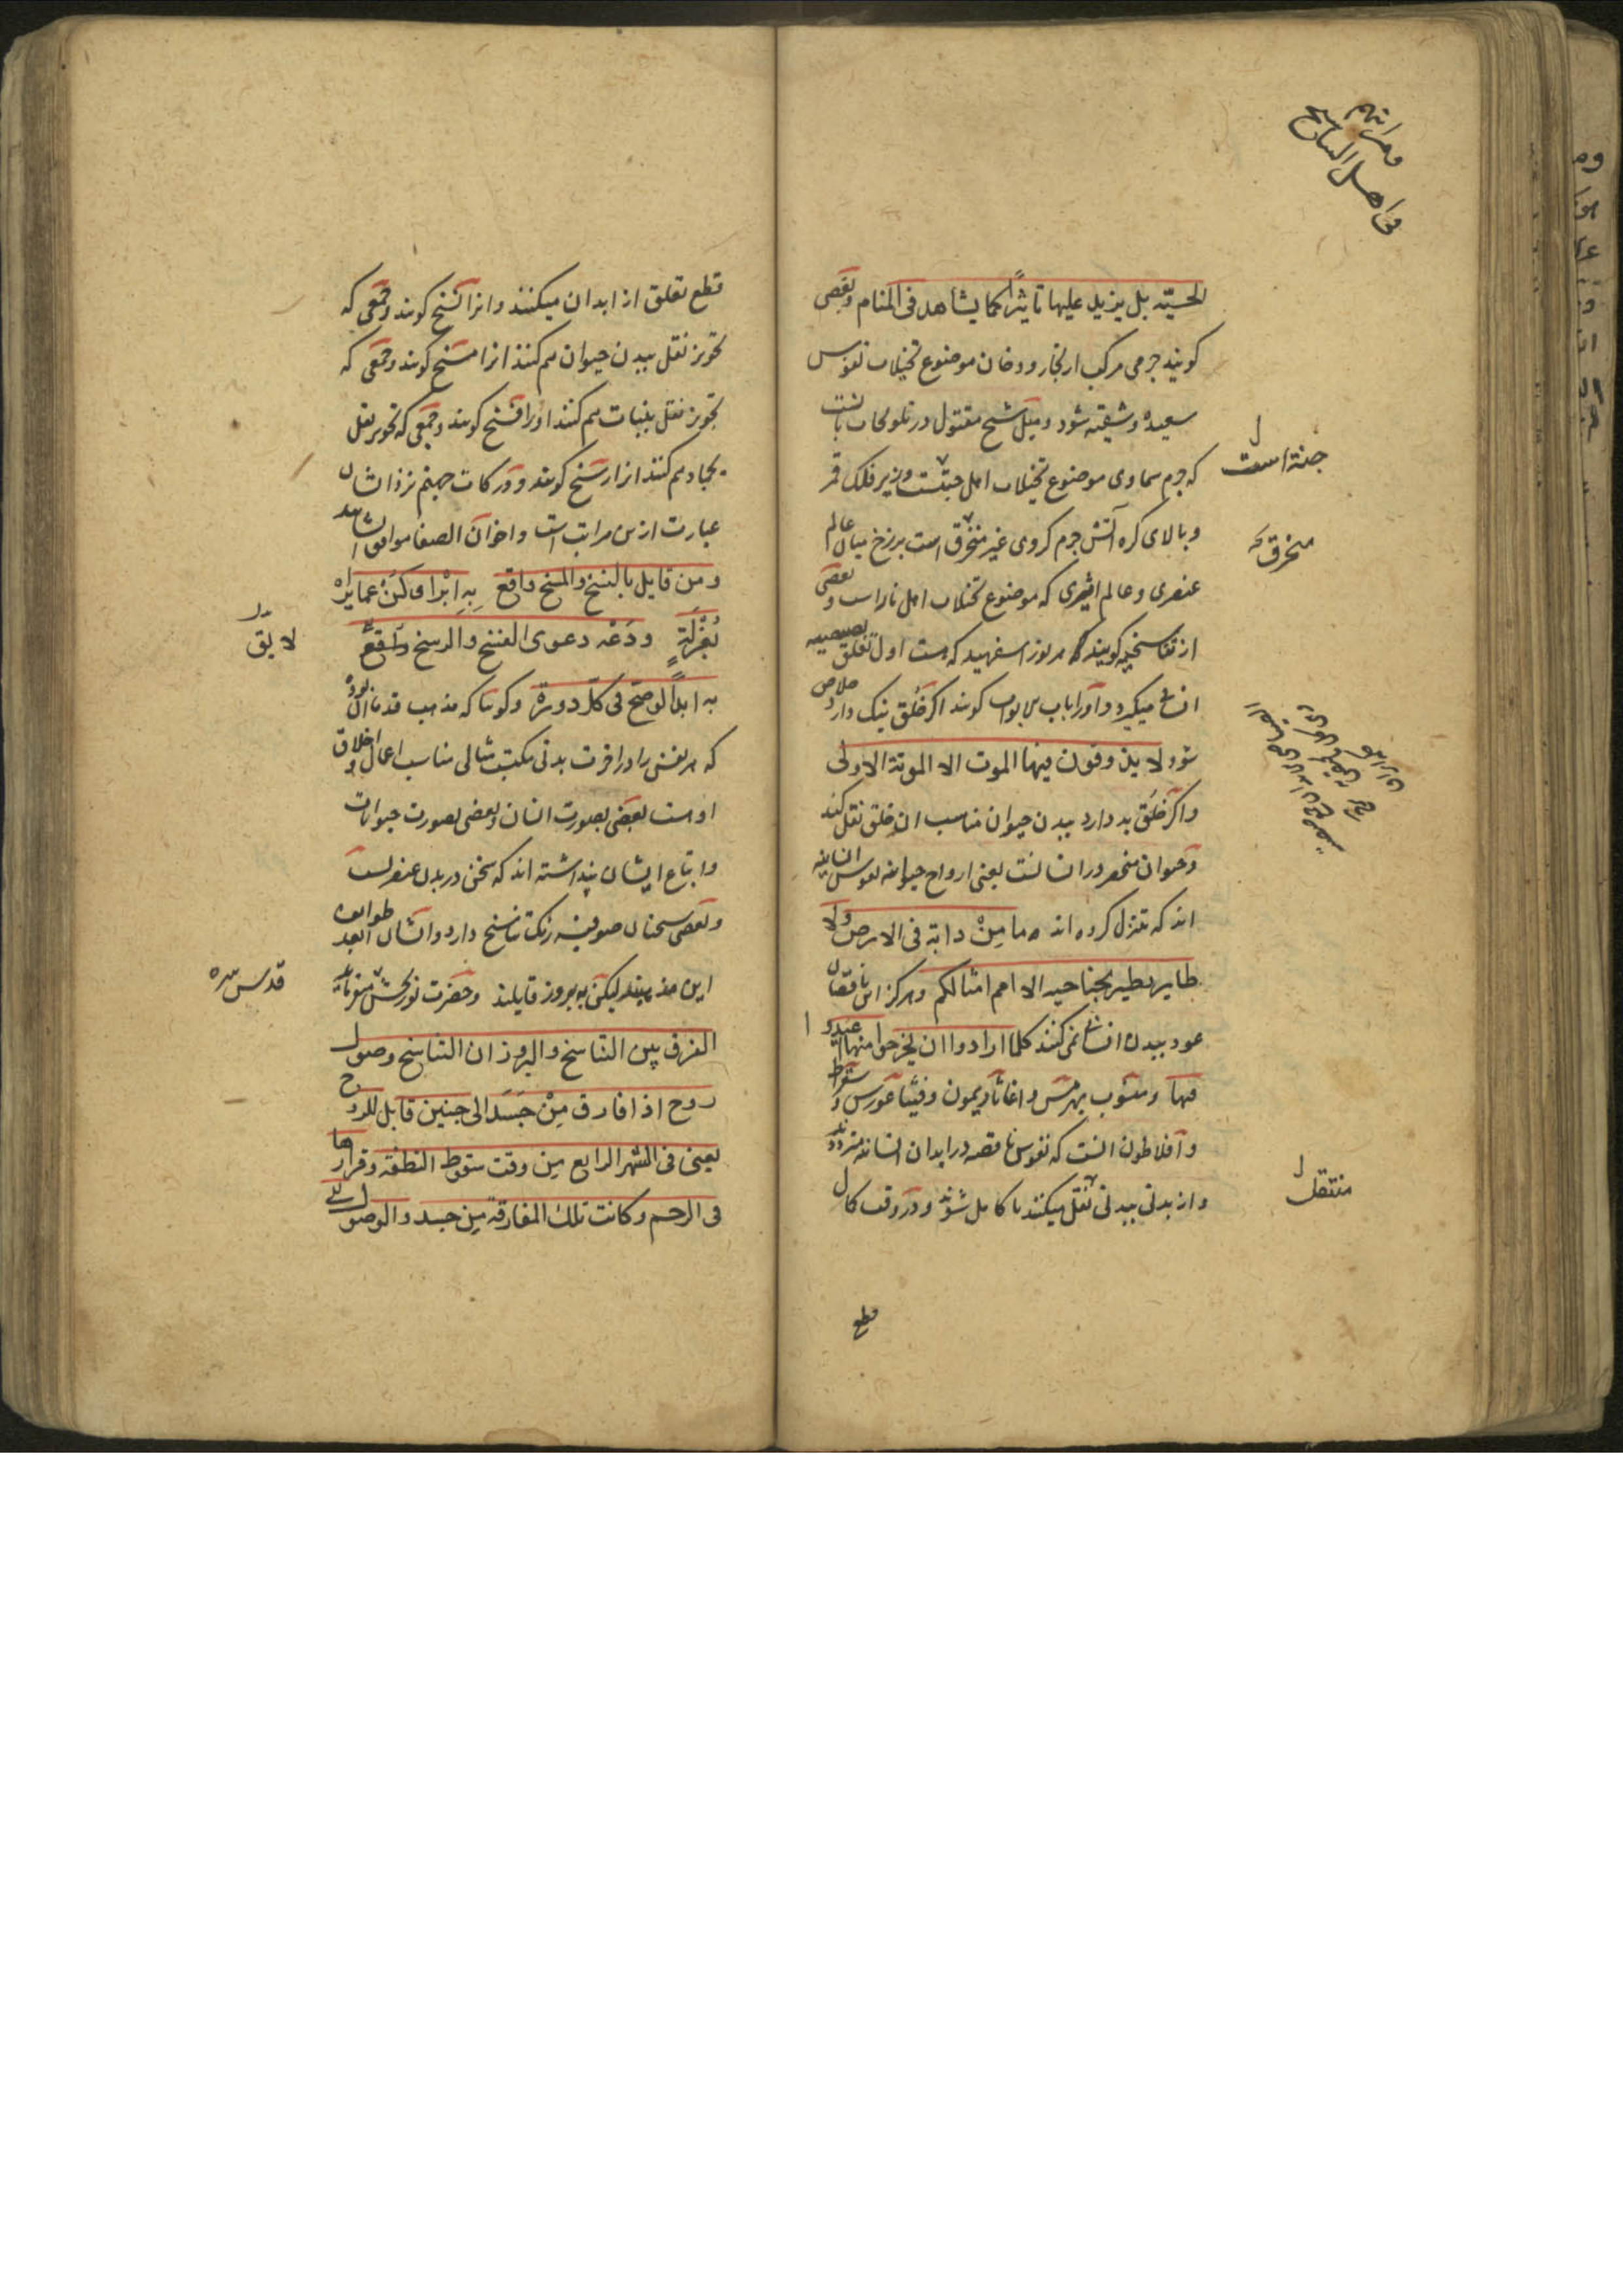 الحسیّه بل یزید علیها تاثیراً کما یشاهد فی المنام و بعضی
کویند جرمی مرکب از بخار و دخان موضوع تخیلات نفوس
سعیده و شقیه شود و میل شیخ مقتول در تلویحات بانست
که جرم سماوی موضوع تخیلات اهل جنتست و زیر فلک قمر
جنة است
و بالای کره آتش جرم کروی غیر منخرق است برزخ میان عالم
منخرقه
عنصری و عالم اثیری که موضوع تخیلات اهل نار است و بعضی
از تناسخیه کویند که هر نور اسفهبد که هست اول تعلق بصیصیه
انسانی میکیرد و آنرا باب الابواب کویند اکر خُلق نیک دارد خلاص
شود لا یذوقون فیها الموت الا الموتة الاولی
و اکر خُلق بد دارد ببدن حیوان مناسب ان خلق نقل کند
و حیوان منحصر در انسانست یعنی ارواح حیوانیه نفوس انسانیه
اند که تنزل کرده اند و ما مِنْ دابة فی الارض ولا
طایر یطیر بجناحیه الا امم امثالکم و هرکز این ناقصان
عود ببدن انسانی نمی کنند کلما ارادوا ان یخرجوا منها اعیدوا
فیها و منسوب بهرمس و اغاثاذیمون و فیثاغورس و سقراط
و افلاطون انست که نفوس ناقصه در ابدان انسانیه مترددند
و از بدنی ببدنی نقل میکنند تا کامل شوند و در وقت کمال
منتقل
قطع
قطع تعلق از ابدان میکنند و انرا نسخ کویند و جمعی که
تجویز نقل ببدن حیوان هم کنند انرا مسخ کویند و جمعی که
تجویز نقل بنبات هم کنند اورا فسخ کویند و جمعی که تجویز نقل
بجماد هم کنند انرا رسخ کویند و درکات جهنم نزد ایشان
عبارت ازین مراتب است و اخوان الصفا موافق ایشانند
و من قایل بالنسخ والمسخ واقع بِهِ ابْرا و کُنْ عما یراه
بُعْزلَةٍ و دَعْه دعوی الفسخ والرسخ لایق
لایق
به ابداً لو صح فی کل دورة و کویند که مذهب قدما آن بوده
که هر نفس را در اخرت بدنی مکتسب مثالی مناسب اعمال و اخلاق
او هست بعضی بصورت انسان و بعضی بصورت حیوانات
و اتباع ایشان پنداشته اند که سخن در بدن عنصریست
و بعضی سخنان صوفیه رنک تناسخ دارد و ایشان ابعد طوایف
ازین مذهبند لیکن به بروز قایلند و حضرت نوربخش میفرماید
قدس سره
الفرق بین التناسخ والبروز ان التناسخ وصول
روح اذا فارق مِنْ جَسَد الی جنین قابل للروح
یعنی فی الشهر الرابع مِن وقت سقوط النطفة و قرارها
فی الرحم و کانت تلك المفارقة مِن جسد والوصول الی